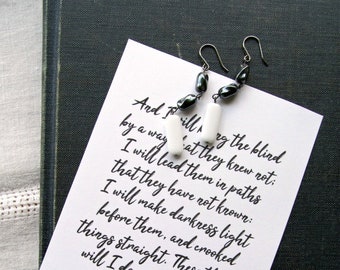 And I will bring the blind
by a way that they knew not;
I will lead them in paths
that they have not known:
I will make darkness light
before them, and crooked
things straight. These
will I